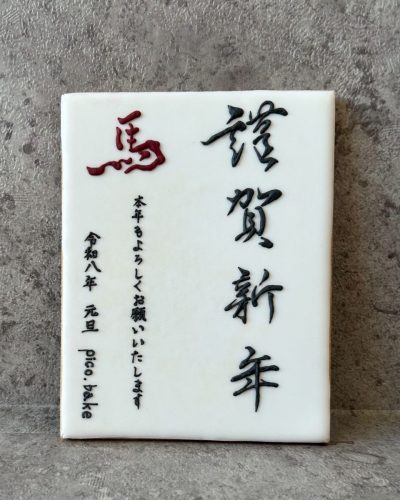 謹賀新年
馬
本年もよろしくお願いいたします
令和八年 元旦 pico.bake